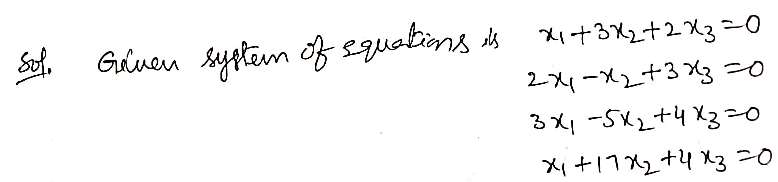 Sol. Given system of equations is x₁+3x₂+2x₃=0
2x₁-x₂+3x₃=0
3x₁-5x₂+4x₃=0
x₁+17x₂+4x₃=0